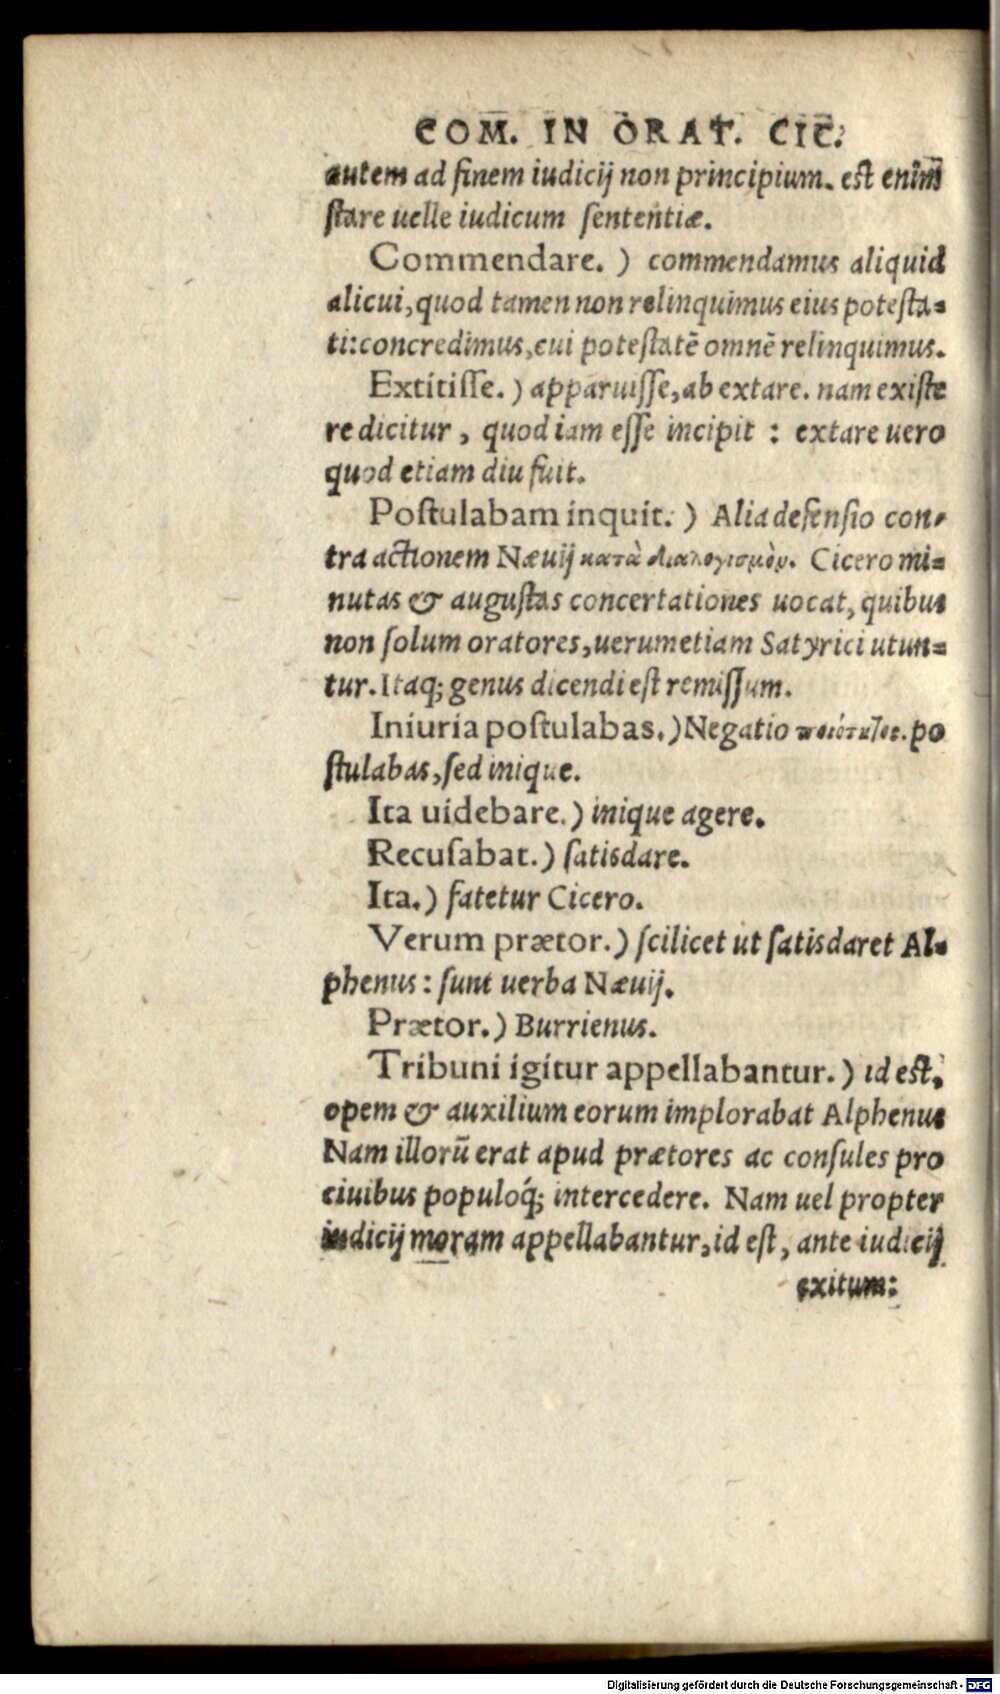 COM. IN ORAT. CIC.
autem ad finem iudicij non principium. est enim
stare uelle iudicum sententiæ.
Commendare. ) commendamus aliquid
alicui, quod tamen non relinquimus eius potesta=
ti: concredimus, cui potestatē omnē relinquimus.
Extitisse. ) apparuisse, ab extare. nam existe
re dicitur, quod iam esse incipit : extare uero
quod etiam diu fuit.
Postulabam inquit. ) Alia defensio con,
tra actionem Næuij κατὰ διαλογισμὸν. Cicero mi=
nutas & augustas concertationes uocat, quibus
non solum oratores, uerumetiam Satyrici utun=
tur. Itaq; genus dicendi est remissum.
Iniuria postulabas.) Negatio ποιότητος. po
stulabas, sed inique.
Ita uidebare.) inique agere.
Recusabat.) satisdare.
Ita.) fatetur Cicero.
Verum prætor.) scilicet ut satisdaret Al=
phenus: sunt uerba Næuij.
Prætor.) Burrienus.
Tribuni igitur appellabantur.) id est,
opem & auxilium eorum implorabat Alphenus
Nam illorū erat apud prætores ac consules pro
ciuibus populoq́; intercedere. Nam uel propter
iudicij moram appellabantur, id est, ante iudicij
exitum:
Digitalisierung gefördert durch die Deutsche Forschungsgemeinschaft - DFG